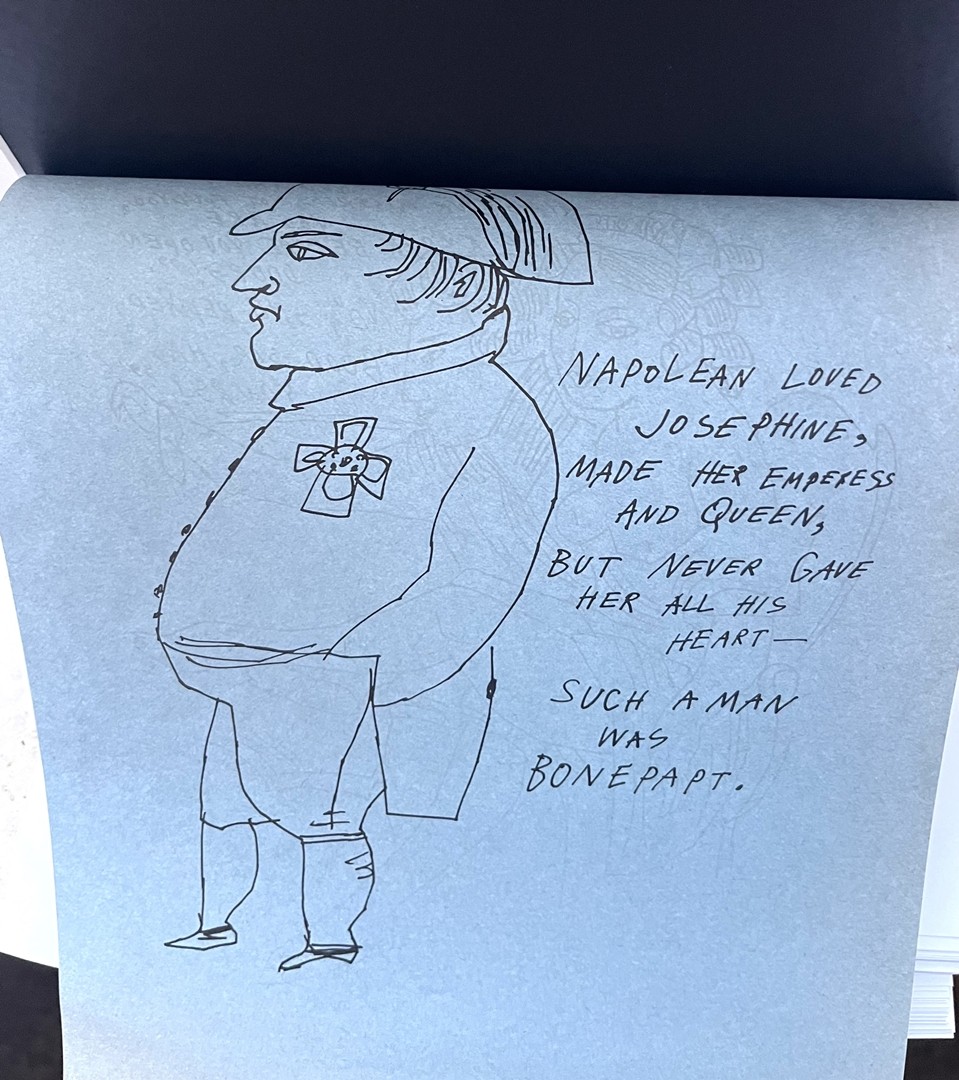 NAPOLEAN LOVED
JOSEPHINE,
MADE HER EMPERESS
AND QUEEN,
BUT NEVER GAVE
HER ALL HIS
HEART—
SUCH A MAN
WAS
BONEPAPT.